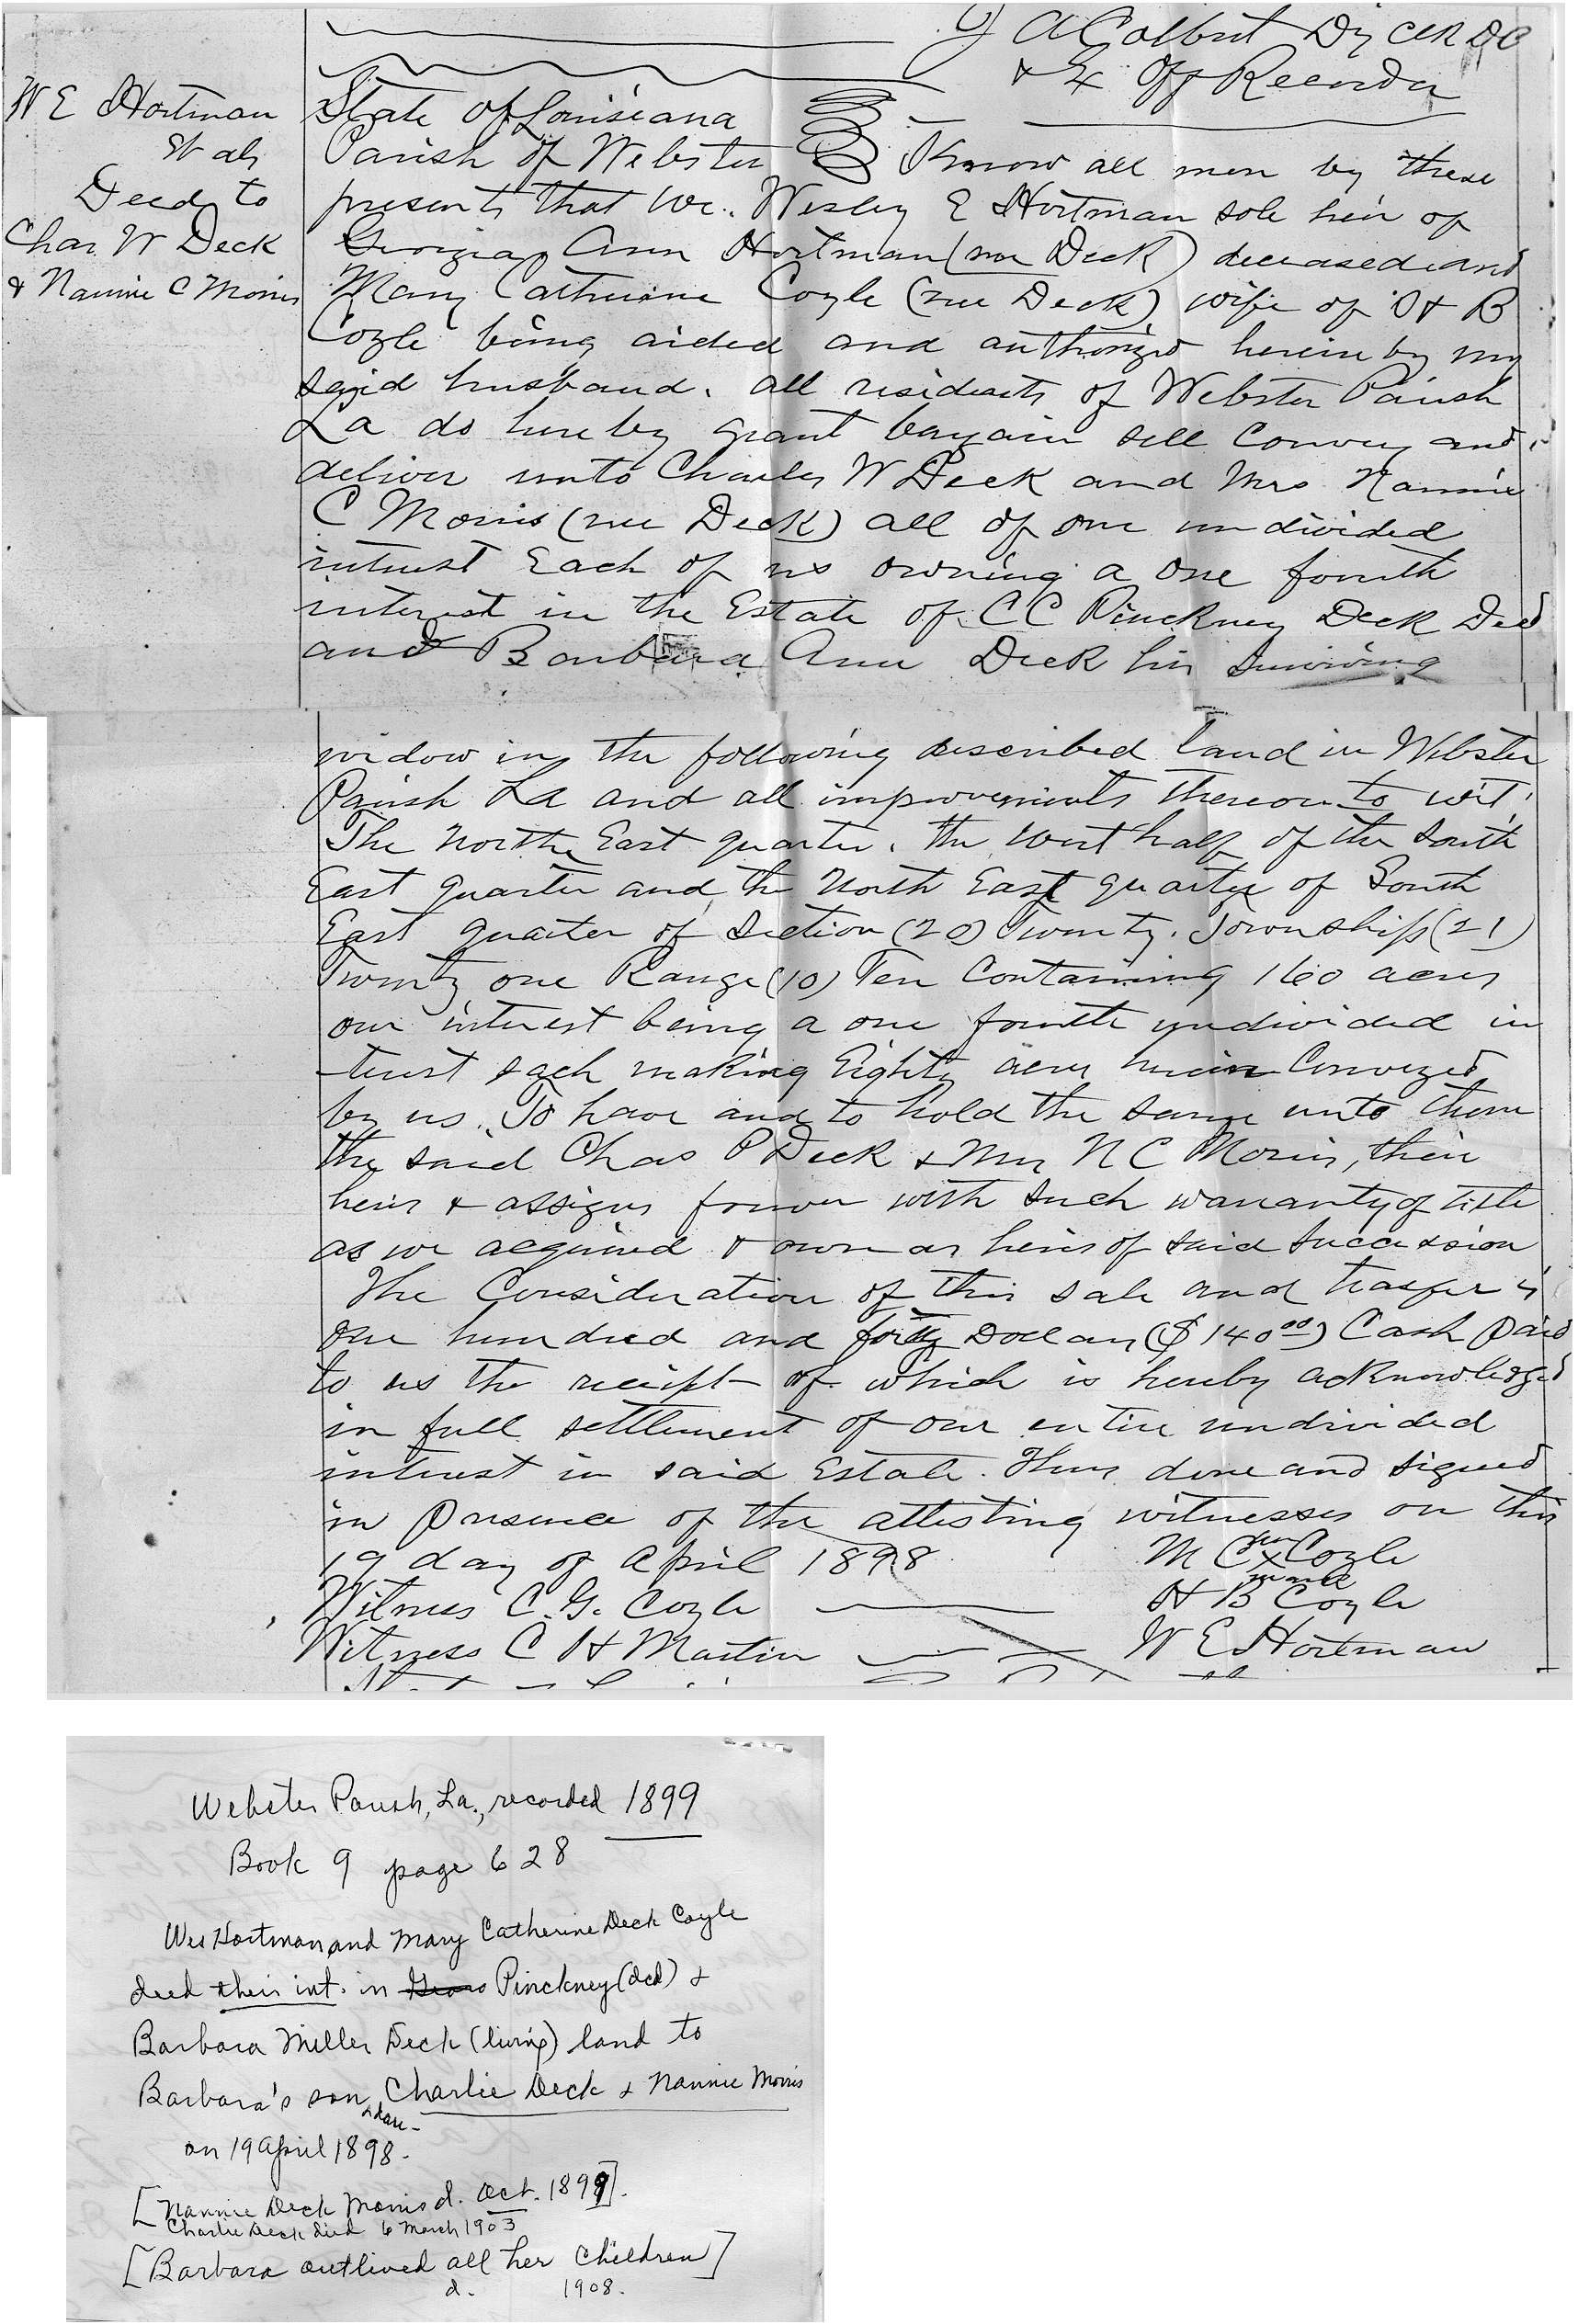 J A Colbert Dy Clk DC
& Ex Off Recorder
W E Hortman
Et als
Deed to
Chas. W Deck
& Nannie C Morris
State of Louisiana
Parish of Webster Know all men by these
presents that we. Wesley E Hortman sole heir of
Georgia Ann Hortman (nee Deck) deceased and
Mary Catherine Coyle (nee Deck) wife of H B
Coyle being aided and authorized herein by my
said husband. all residents of Webster Parish
La do hereby grant bargain sell convey and
deliver unto Charles W Deck and Mrs Nannie
C Morris (nee Deck) all of our undivided
interest Each of us owning a one fourth
interest in the Estate of C C Pinckney Deck Decd
and Barbara Ann Deck his surviving
widow in the following described land in Webster
Parish La and all improvements thereon to wit:
The North East quarter. the West half of the South
East quarter and the North East quarter of South
East quarter of Section (20) Twenty. Township (21)
Twenty one Range (10) Ten Containing 160 acres
our interest being a one fourth undivided in
-terest each making Eighty acres herein Conveyed
by us. To have and to hold the same unto them
the said Chas P Deck & Mrs N C Morris, their
heirs & assigns forever with such warranty of title
as we acquired & own as heirs of said succession
The Consideration of this sale and trasfer is
One hundred and forty Dollars ($140.00) Cash paid
to us the receipt of which is hereby acknowledged
in full settlement of our entire undivided
interest in said Estate. Thus done and signed
in presence of the attesting witnesses on this
19 day of April 1898
M C her x mark Coyle
Witness C. G. Coyle H B Coyle
Witness C H Martin W E Hortman
Webster Parish, La., recorded 1899
Book 9 page 628
Wes Hortman and Mary Catherine Deck Coyle
deed their int. in Pinckney (dcd) &
Barbara Miller Deck (living) land to
Barbara's son & dau- Charlie Deck & Nannie Morris
on 19 April 1898.
[Nannie Deck Morris d. Oct. 1899].
Charlie Deck died 6 March 1903
[Barbara outlived all her children]
d. 1908.